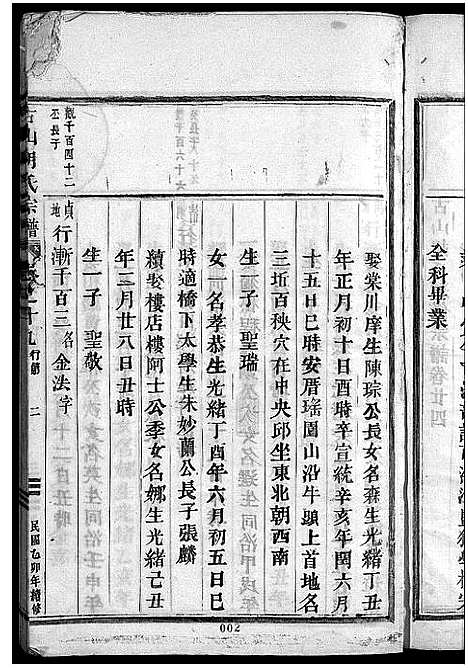 全科畢業
娶棠川庠生陳琮公長女名森生光緒丁丑
年正月初十日酉時辛宣統辛亥年閏六月
十五日巳時安厝瑤園山沿牛頭上首地名
三坵百秧穴在中央邱坐東北朝西南
生一子 聖瑞
女一名孝恭生光緒丁酉年六月初五日巳
時適橋下太學生朱妙蘭公長子張麟
續娶樓店樓阿士公季女名娜生光緒己丑
年三月廿八日丑時
生一子 聖敬
貞地 行漸千百三 名金法字
觀千百四十二
丕長子
古山胡氏宗譜
行第
二
民國乙卯年續修
002